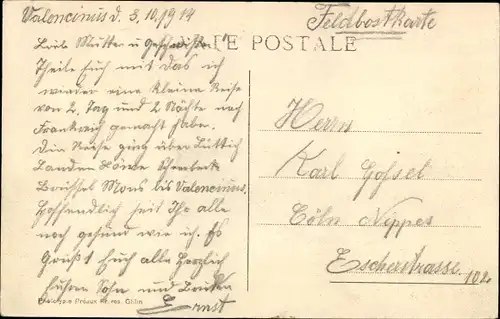 Valencinus d. 3.10.1914
Feldpostkarte
TE POSTALE
Liebe Mutter u Geschwister!
Theile Euch mit das ich
wieder eine kleine Reise
von 2. Tag und 2 Nächte nach
Frankreich gemacht habe.
Die Reise ging über Lüttich
Landen
Brüssel Mons bis Valencinus.
Hoffendlich seit Ihr alle
noch gesund wie ich. Es
Grüßt Euch alle Herzlich
Euhren Sohn und Bruder
Ernst
Herrn
Karl Gossel
Cöln Nippes
Escherstrasse 102
Préaux Ghlin